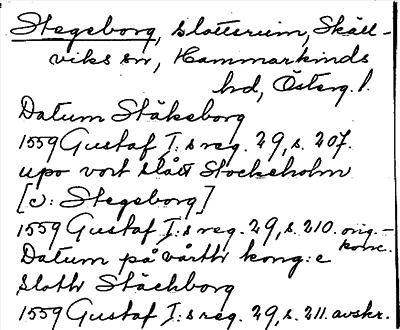 Stegeborg, slottsruin, Skäll-
viks sn, Hammarkinds
hd, Österg. l.
Datum Stäkeborg
1559 Gustaf I:s reg. 29, s. 207.
upo vort slått Stockeholm
[ɔ: Stegeborg]
1559 Gustaf I:s reg. 29, s. 210. orig.-
konc.
Datum på vårth kong:e
sloth Stächborg
1559 Gustaf I:s reg. 29, s. 211. avskr.